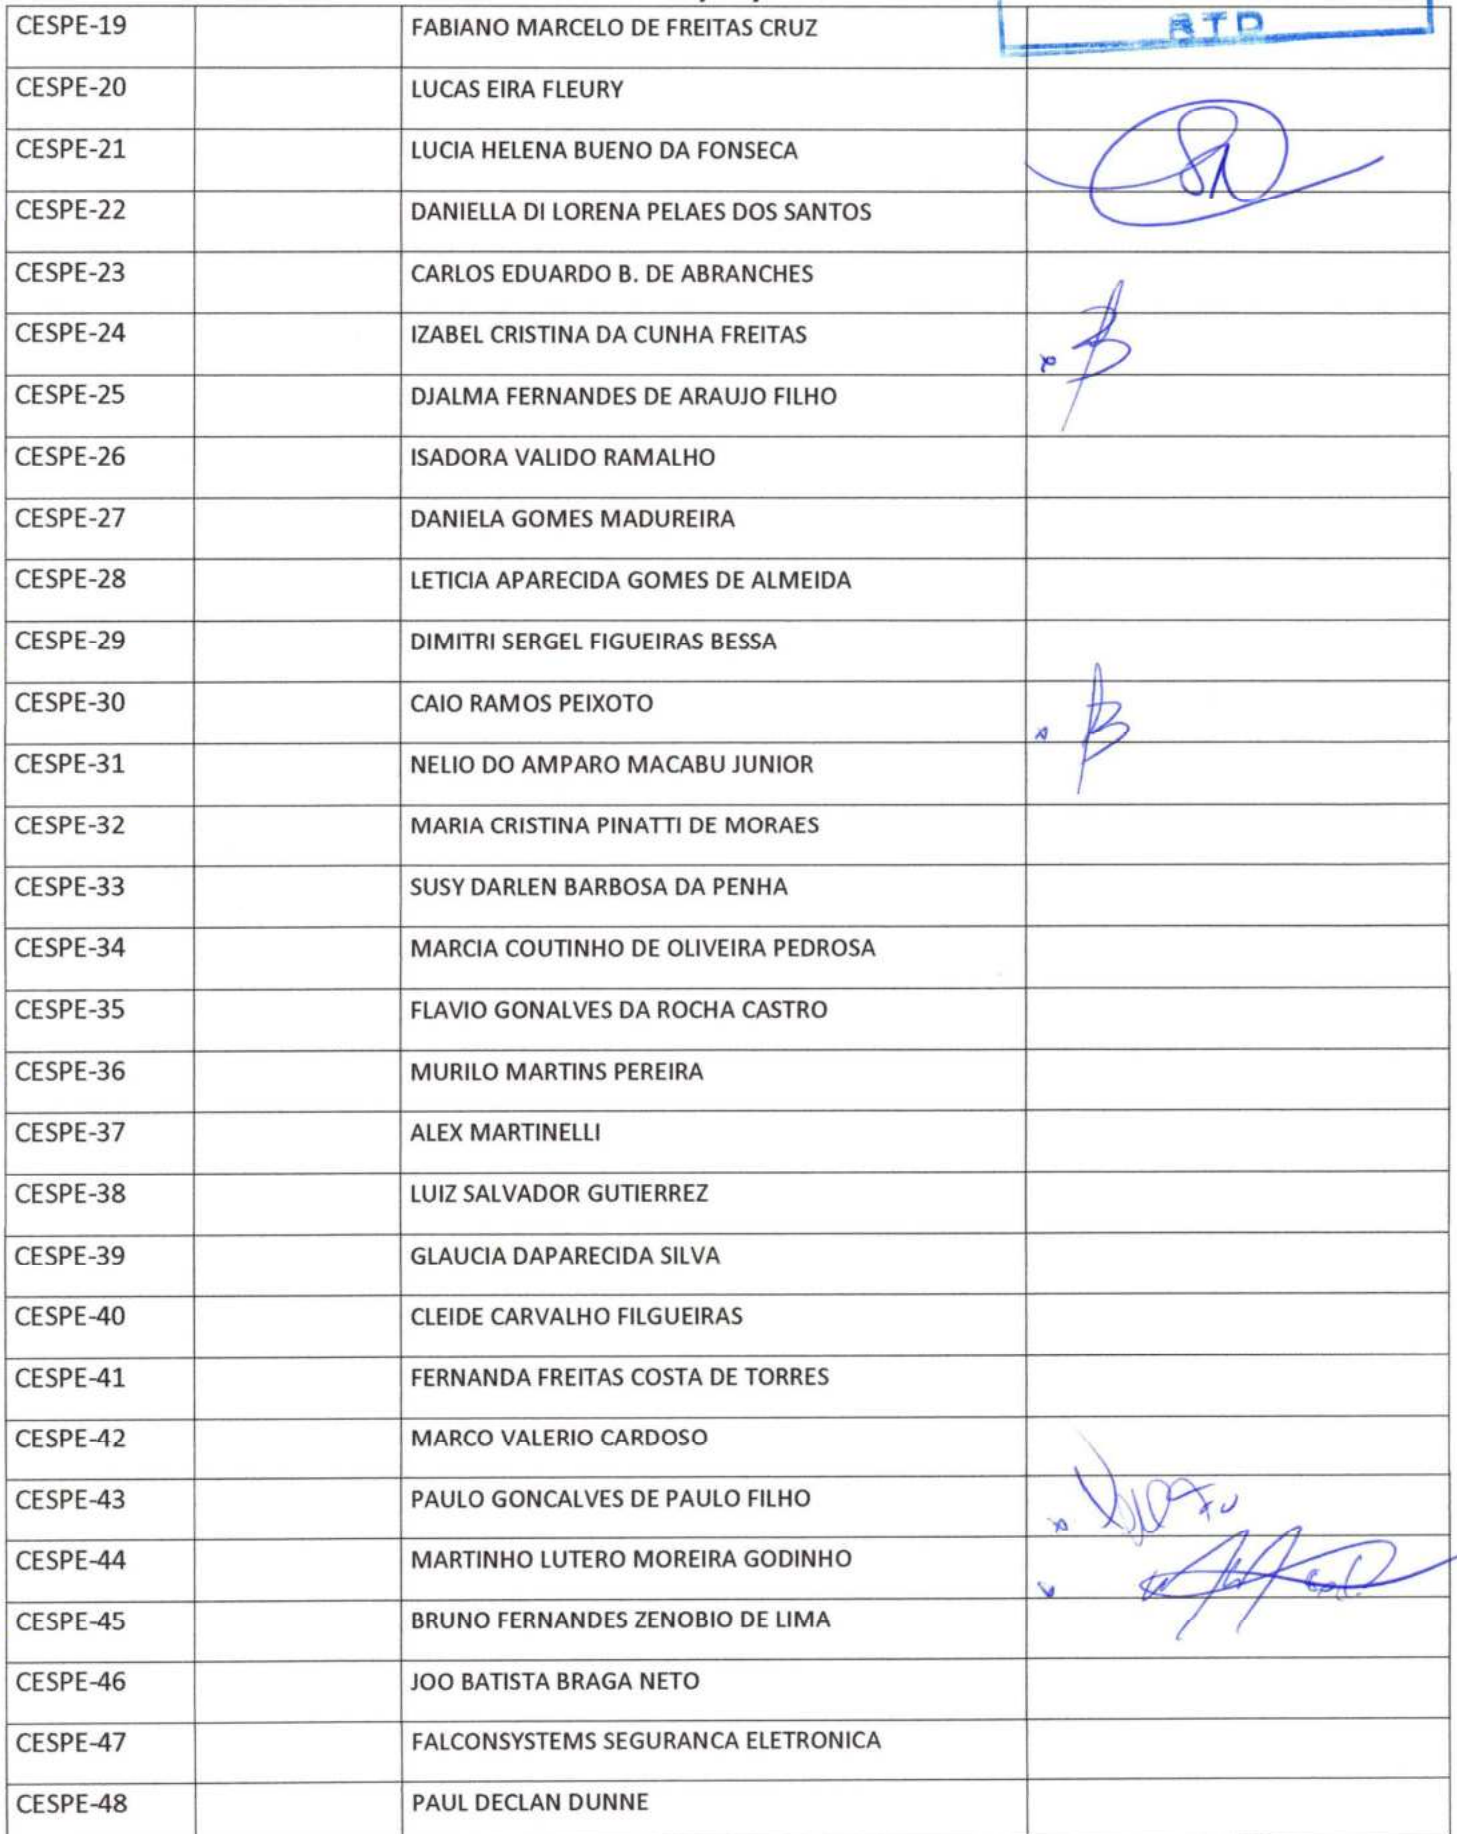 BTD
CESPE-19 FABIANO MARCELO DE FREITAS CRUZ
CESPE-20 LUCAS EIRA FLEURY
CESPE-21 LUCIA HELENA BUENO DA FONSECA
CESPE-22 DANIELLA DI LORENA PELAES DOS SANTOS
CESPE-23 CARLOS EDUARDO B. DE ABRANCHES
CESPE-24 IZABEL CRISTINA DA CUNHA FREITAS
CESPE-25 DJALMA FERNANDES DE ARAUJO FILHO
CESPE-26 ISADORA VALIDO RAMALHO
CESPE-27 DANIELA GOMES MADUREIRA
CESPE-28 LETICIA APARECIDA GOMES DE ALMEIDA
CESPE-29 DIMITRI SERGEL FIGUEIRAS BESSA
CESPE-30 CAIO RAMOS PEIXOTO
CESPE-31 NELIO DO AMPARO MACABU JUNIOR
CESPE-32 MARIA CRISTINA PINATTI DE MORAES
CESPE-33 SUSY DARLEN BARBOSA DA PENHA
CESPE-34 MARCIA COUTINHO DE OLIVEIRA PEDROSA
CESPE-35 FLAVIO GONALVES DA ROCHA CASTRO
CESPE-36 MURILO MARTINS PEREIRA
CESPE-37 ALEX MARTINELLI
CESPE-38 LUIZ SALVADOR GUTIERREZ
CESPE-39 GLAUCIA DAPARECIDA SILVA
CESPE-40 CLEIDE CARVALHO FILGUEIRAS
CESPE-41 FERNANDA FREITAS COSTA DE TORRES
CESPE-42 MARCO VALERIO CARDOSO
CESPE-43 PAULO GONCALVES DE PAULO FILHO
CESPE-44 MARTINHO LUTERO MOREIRA GODINHO
CESPE-45 BRUNO FERNANDES ZENOBIO DE LIMA
CESPE-46 JOO BATISTA BRAGA NETO
CESPE-47 FALCONSYSTEMS SEGURANCA ELETRONICA
CESPE-48 PAUL DECLAN DUNNE